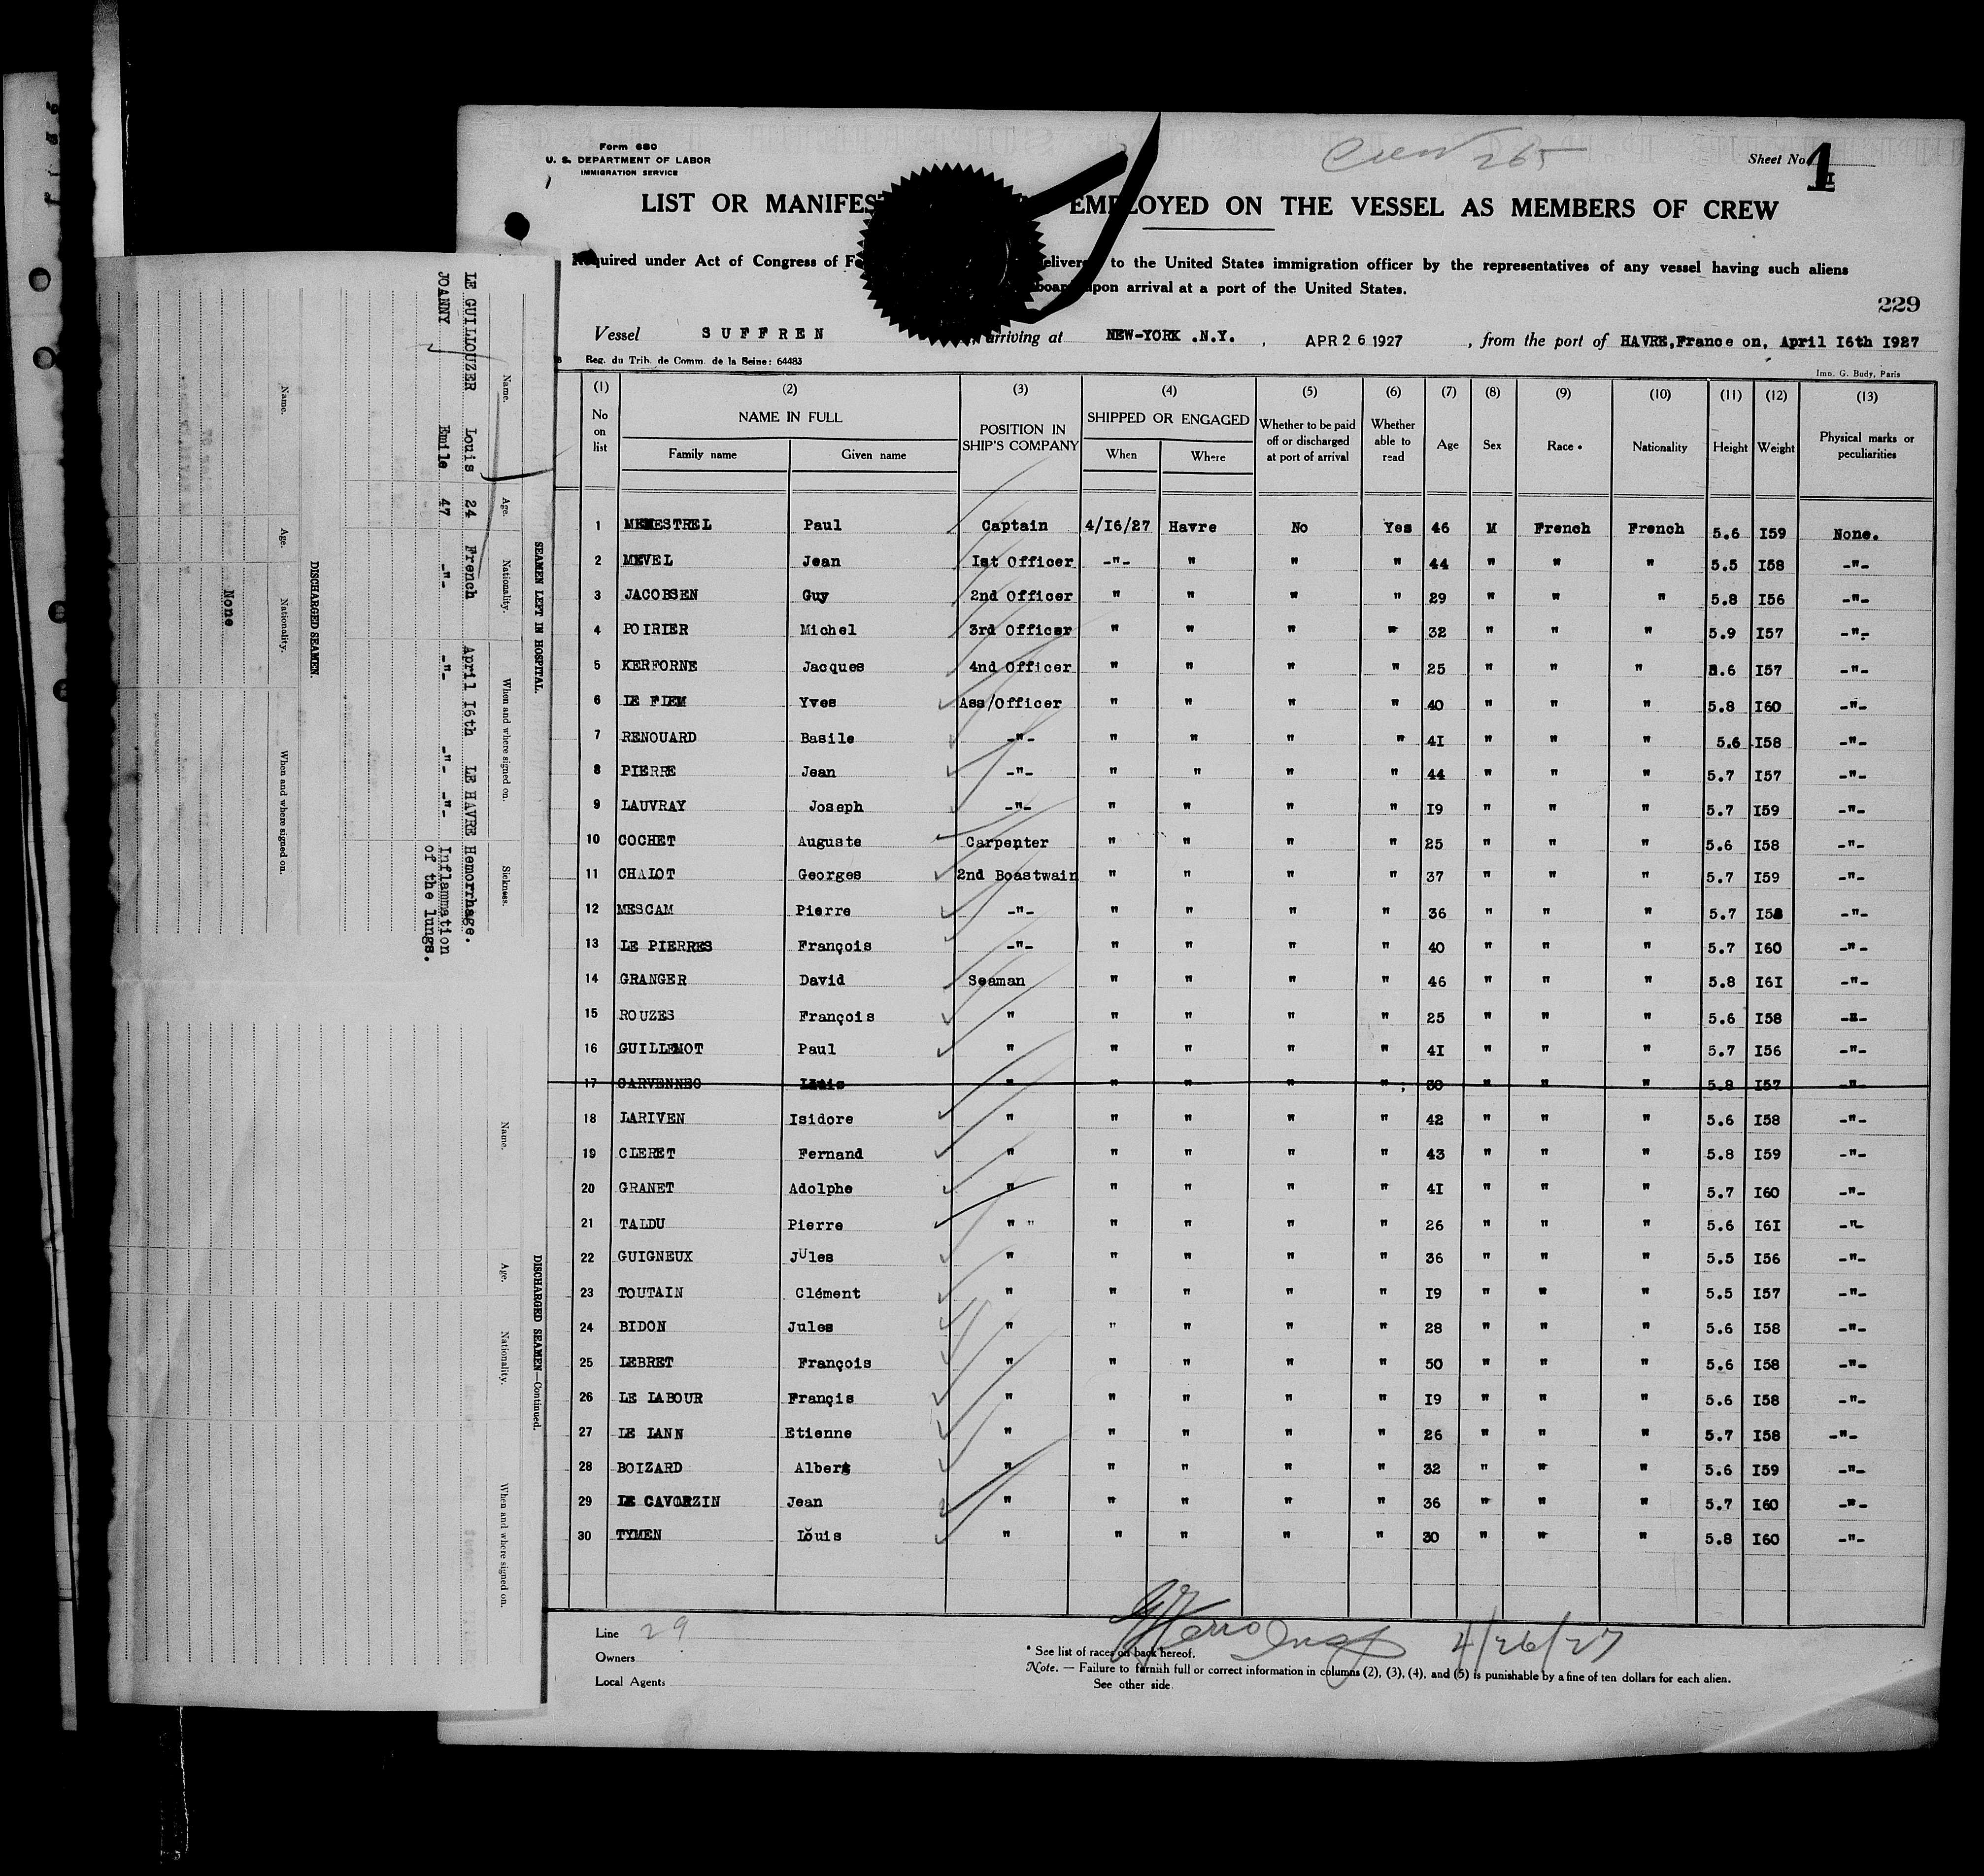 Form 680
U. S. DEPARTMENT OF LABOR
IMMIGRATION SERVICE
Crew 265
Sheet No. 1
LIST OR MANIFES EMPLOYED ON THE VESSEL AS MEMBERS OF CREW
Required under Act of Congress of Fe delivered to the United States immigration officer by the representatives of any vessel having such aliens
board upon arrival at a port of the United States.
229
Vessel SUFFREN arriving at NEW-YORK .N.Y. , APR 26 1927 , from the port of HAVRE,France on, April I6th I927
Reg. du Trib. de Comm. de la Seine: 64483
Imp. G. Budy, Paris
(1) (2) (3) (4) (5) (6) (7) (8) (9) (10) (11) (12) (13)
No on list NAME IN FULL POSITION IN SHIP'S COMPANY SHIPPED OR ENGAGED Whether to be paid off or discharged at port of arrival Whether able to read Age Sex Race * Nationality Height Weight Physical marks or peculiarities
Family name Given name When Where
1 MENESTREL Paul Captain 4/I6/27 Havre No Yes 46 M French French 5.6 I59 None.
2 MEVEL Jean Ist Officer -"- " " " 44 " " " 5.5 I58 -"-
3 JACOBSEN Guy 2nd Officer " " " " 29 " " " 5.8 I56 -"-
4 POIRIER Michel 3rd Officer " " " " 32 " " " 5.9 I57 -"-
5 KERFORNE Jacques 4nd Officer " " " " 25 " " " 5.6 I57 -"-
6 LE FLEM Yves Ass/Officer " " " " 40 " " " 5.8 I60 -"-
7 RENOUARD Basile -"- " " " " 4I " " " 5.6 I58 -"-
8 PIERRE Jean -"- " " " " 44 " " " 5.7 I57 -"-
9 LAUVRAY Joseph -"- " " " " I9 " " " 5.7 I59 -"-
10 COCHET Auguste Carpenter " " " " 25 " " " 5.6 I58 -"-
11 CHALOT Georges 2nd Boastwain " " " " 37 " " " 5.7 I59 -"-
12 MESCAM Pierre -"- " " " " 36 " " " 5.7 I58 -"-
13 LE PIERRES François -"- " " " " 40 " " " 5.7 I60 -"-
14 GRANGER David Seaman " " " " 46 " " " 5.8 I6I -"-
15 ROUZES François " " " " " 25 " " " 5.6 I58 -"-
16 GUILLEMOT Paul " " " " " 4I " " " 5.7 I56 -"-
17 CARVENNEC Louis " " " " " 30 " " " 5.8 I57 -"-
18 LARIVEN Isidore " " " " " 42 " " " 5.6 I58 -"-
19 CLERET Fernand " " " " " 43 " " " 5.8 I59 -"-
20 GRANET Adolphe " " " " " 4I " " " 5.7 I60 -"-
21 TALDU Pierre " " " " " " 26 " " " 5.6 I6I -"-
22 GUIGNEUX JUles " " " " " 36 " " " 5.5 I56 -"-
23 TOUTAIN Clément " " " " " I9 " " " 5.5 I57 -"-
24 BIDON Jules " " " " " 28 " " " 5.6 I58 -"-
25 LEBRET François " " " " " 50 " " " 5.6 I58 -"-
26 LE LABOUR Françis " " " " " I9 " " " 5.6 I58 -"-
27 LE LANN Etienne " " " " " 26 " " " 5.7 I58 -"-
28 BOIZARD Albert " " " " " 32 " " " 5.6 I59 -"-
29 LE CAVORZIN Jean " " " " " 36 " " " 5.7 I60 -"-
30 TYMEN Louis " " " " " 30 " " " 5.8 I60 -"-
Line 29
Owners
Local Agents
4/26/27
* See list of races on back hereof.
Note. — Failure to furnish full or correct information in columns (2), (3), (4), and (5) is punishable by a fine of ten dollars for each alien.
See other side.
SEAMEN LEFT IN HOSPITAL.
Name. Age. Nationality. When and where signed on. Sickness.
LE GUILLOUZER Louis 24 French April I6th LE HAVRE Hemorrhage.
JOANNY Emile 47 -"- -"- -"- -"- Inflammation
of the lungs.
DISCHARGED SEAMEN.
Name. Age. Nationality. When and where signed on.
None
DISCHARGED SEAMEN—Continued.
Name. Age. Nationality. When and where signed on.